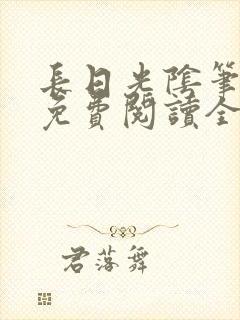 長日光陰筆
免費閱讀全
君落舞